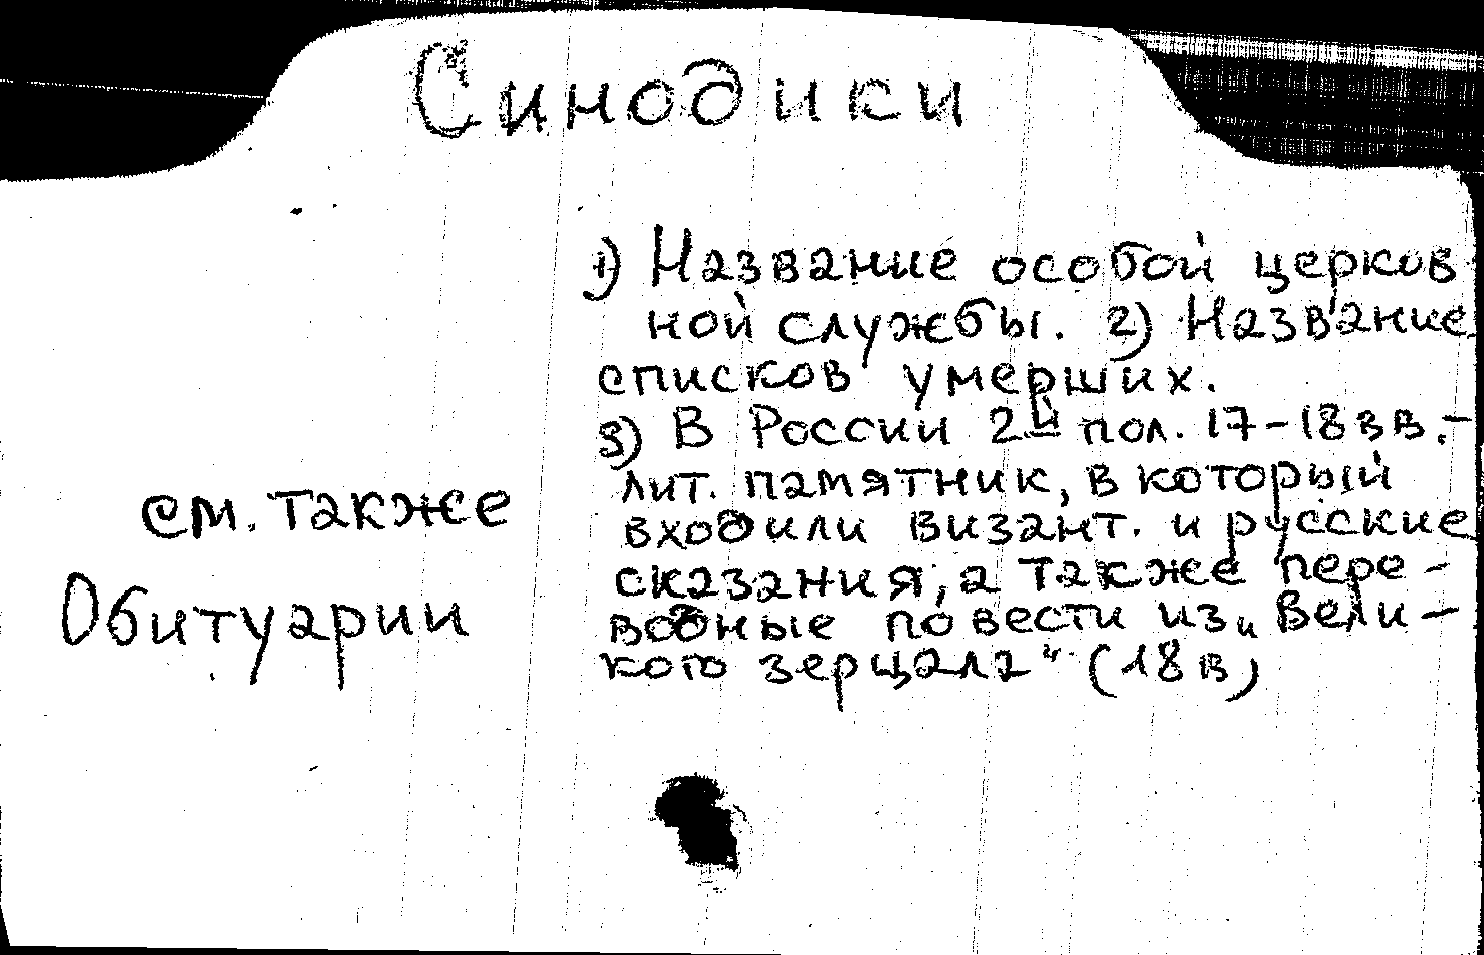 Синодики
1) Название особой церков
ной службы. 2) Название
списков умерших.
3) В России 2й пол. 17-18 вв.-
лит. памятник, в который
входили визант. и русские
сказания, а также пере-
водные повести из „Вели-
кого зерцала“ (18 в)
см. также
Обитуарии